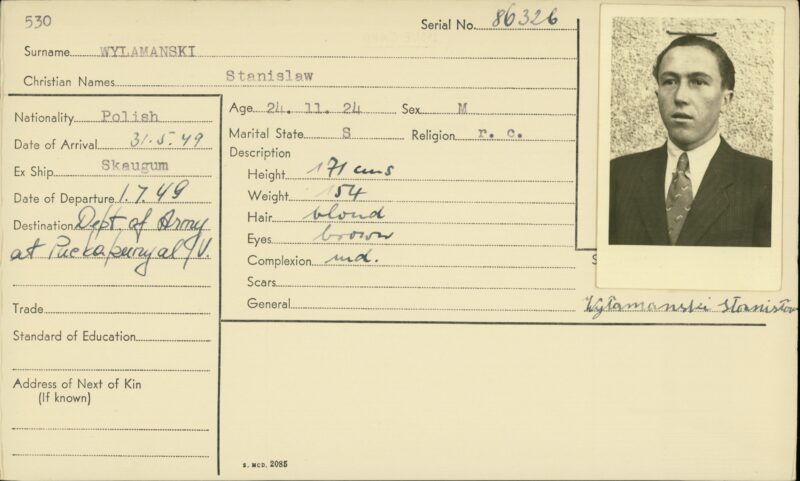 530
Serial No. 86326
Surname WYLAMANSKI
Christian Names Stanislaw
Nationality Polish
Date of Arrival 31.5.49
Ex Ship Skaugum
Date of Departure 1.7.49
Destination Dept. of Army
at Puckapunyal /V.
Trade
Standard of Education
Address of Next of Kin
(If known)
Age 24. 11. 24 Sex M
Marital State S Religion r. c.
Description
Height 171 cms
Weight 54
Hair blond
Eyes brown
Complexion md.
Scars
General
S
Wyłamanski Stanisław
S. MCD. 2085